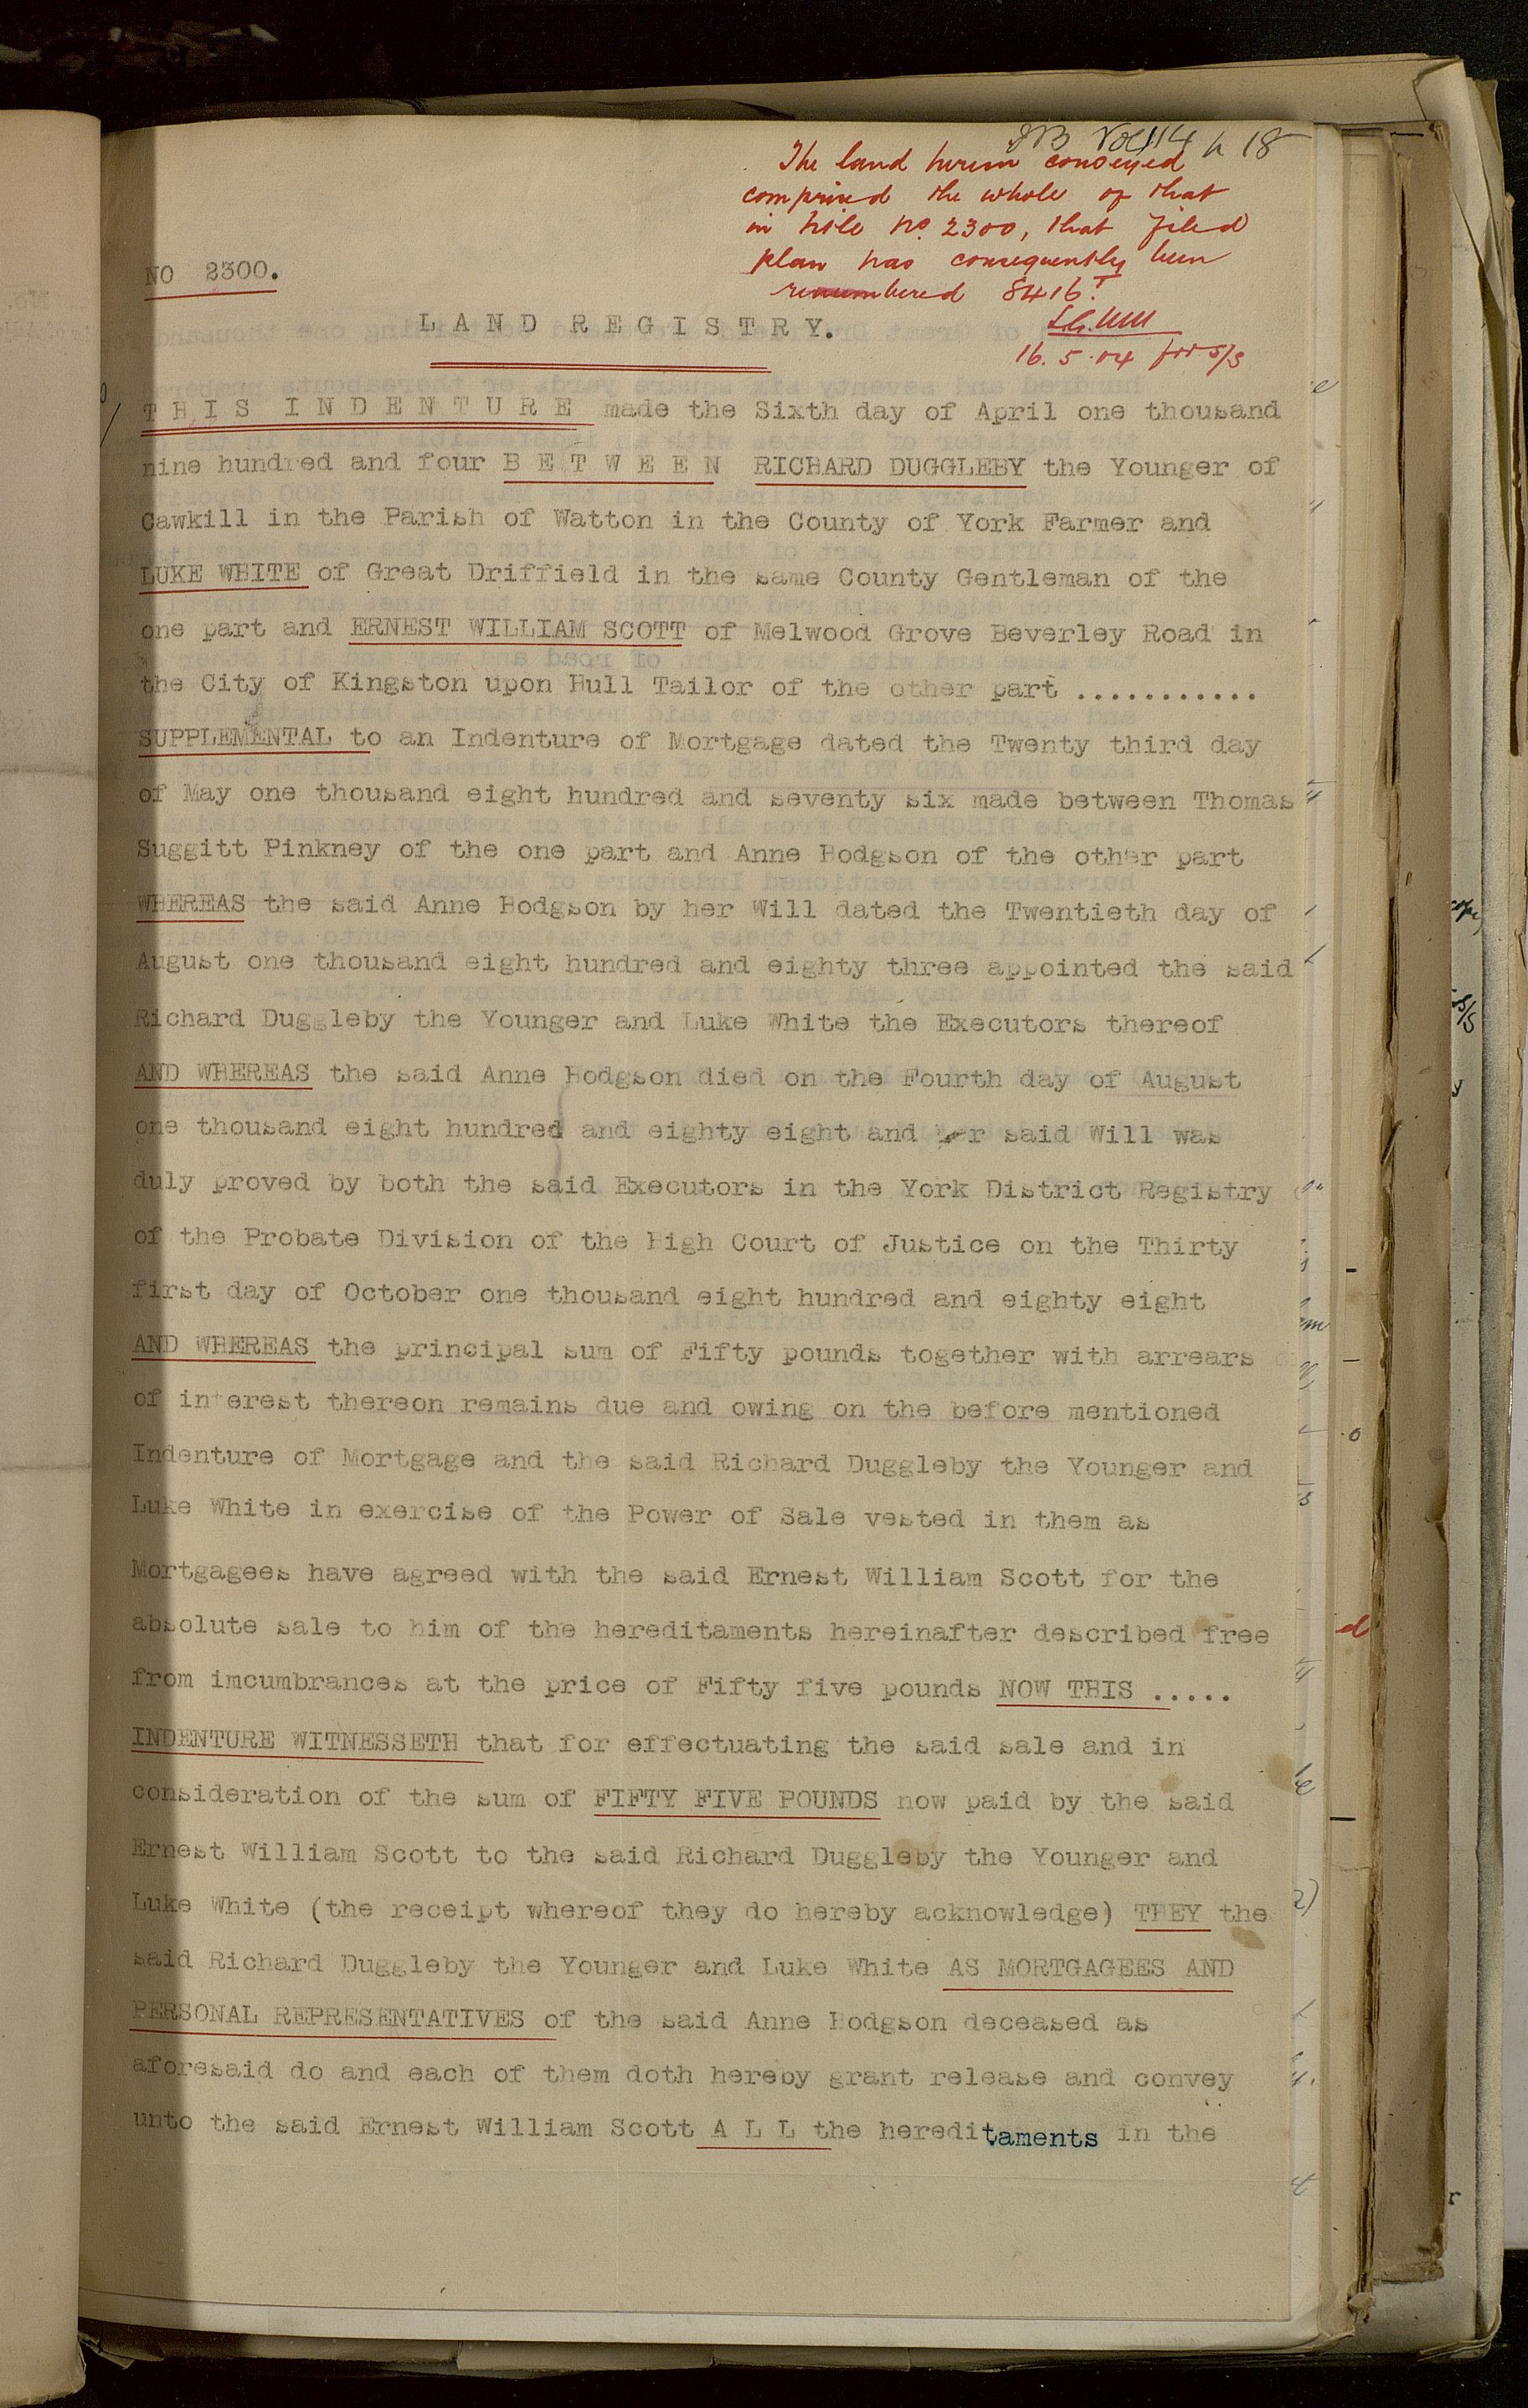 The land herein conveyed
comprised the whole of that
in title No. 2300, that filed
plan has consequently been
renumbered 8416.
16. 5. 04
NO 2300.
L A N D R E G I S T R Y.
T H I S I N D E N T U R E made the Sixth day of April one thousand
nine hundred and four B E T W E E N RICHARD DUGGLEBY the Younger of
Cawkill in the Parish of Watton in the County of York Farmer and
LUKE WHITE of Great Driffield in the same County Gentleman of the
one part and ERNEST WILLIAM SCOTT of Melwood Grove Beverley Road in
the City of Kingston upon Hull Tailor of the other part ...........
SUPPLEMENTAL to an Indenture of Mortgage dated the Twenty third day
of May one thousand eight hundred and seventy six made between Thomas
Suggitt Pinkney of the one part and Anne Hodgson of the other part
WHEREAS the said Anne Hodgson by her Will dated the Twentieth day of
August one thousand eight hundred and eighty three appointed the said
Richard Duggleby the Younger and Luke White the Executors thereof
AND WHEREAS the said Anne Hodgson died on the Fourth day of August
one thousand eight hundred and eighty eight and her said Will was
duly proved by both the said Executors in the York District Registry
of the Probate Division of the High Court of Justice on the Thirty
first day of October one thousand eight hundred and eighty eight
AND WHEREAS the principal sum of Fifty pounds together with arrears
of interest thereon remains due and owing on the before mentioned
Indenture of Mortgage and the said Richard Duggleby the Younger and
Luke White in exercise of the Power of Sale vested in them as
Mortgagees have agreed with the said Ernest William Scott for the
absolute sale to him of the hereditaments hereinafter described free
from imcumbrances at the price of Fifty five pounds NOW THIS .....
INDENTURE WITNESSETH that for effectuating the said sale and in
consideration of the sum of FIFTY FIVE POUNDS now paid by the said
Ernest William Scott to the said Richard Duggleby the Younger and
Luke White (the receipt whereof they do hereby acknowledge) THEY the
said Richard Duggleby the Younger and Luke White AS MORTGAGEES AND
PERSONAL REPRESENTATIVES of the said Anne Hodgson deceased as
aforesaid do and each of them doth hereby grant release and convey
unto the said Ernest William Scott A L L the hereditaments in the